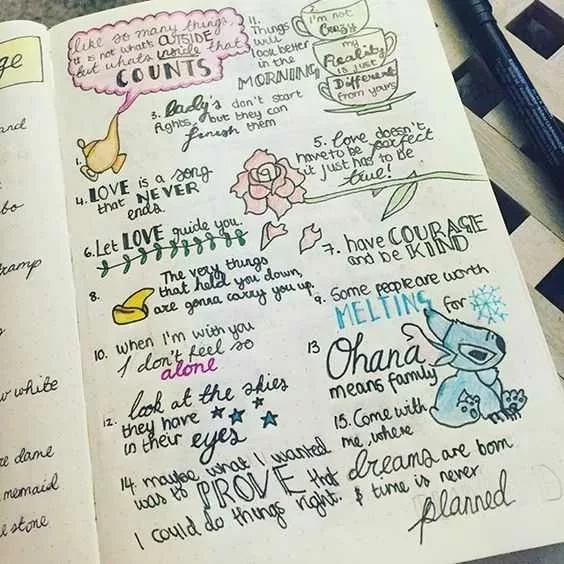 ge
and
bo
tramp
w white
re dame
mermaid
e stone
like so many things,
it is not what's OUTSIDE
but what's inside that
COUNTS
1.
11.
Things
will
look better
in the
MORNING
I'm not
Crazy
my
Reality
is just
Different
from yours
3. lady's don't start
fights, but they can
finish them
4. LOVE is a song
that NEVER
ends.
5. love doesn't
have to be perfect
it just has to be
true!
6. Let LOVE guide you.
7. have COURAGE
and be KIND
8.
The very things
that held you down,
are gonna carry you up.
9. Some people are worth
MELTING for
10. When I'm with you
I don't feel so
alone
12. look at the skies
they have
in their eyes
13
Ohana
means family
14. maybe what I wanted
was to PROVE that
I could do things right.
15. Come with
me, where
dreams are born
& time is never
planned